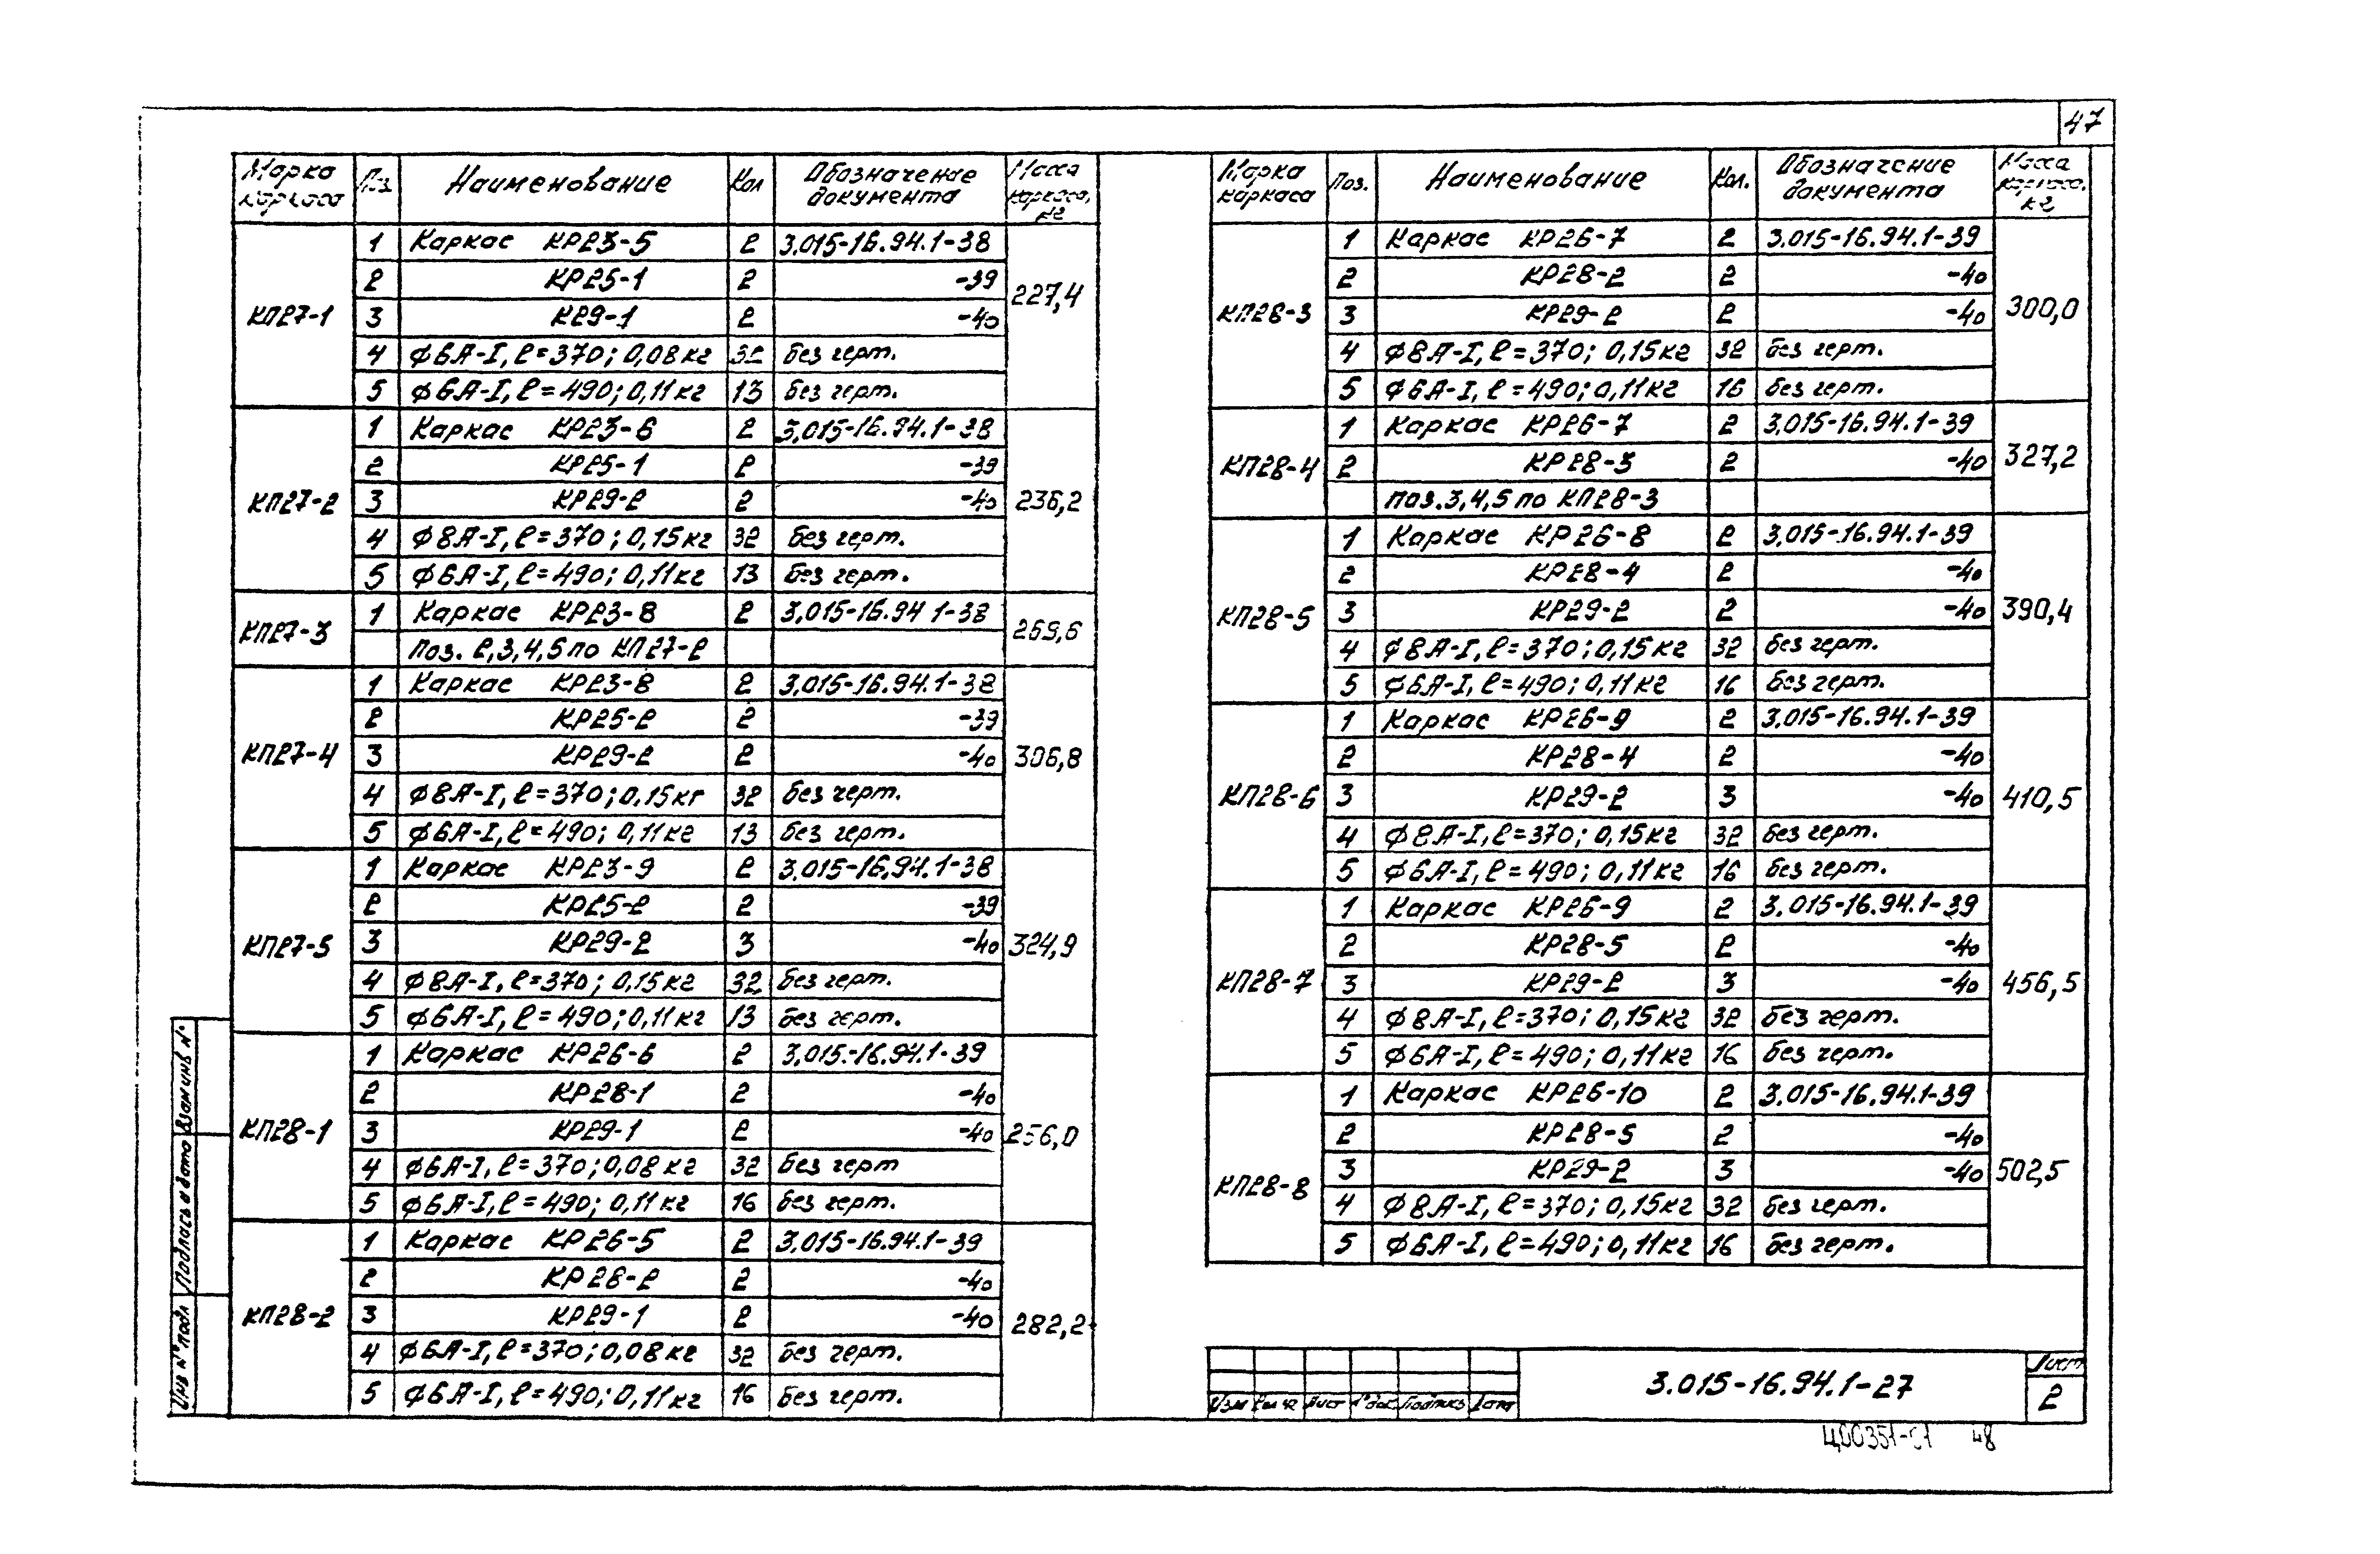 47
Марка каркаса Поз. Наименование Кол Обозначение документа Масса каркаса, кг
КП27-1 227,4
1 Каркас КР23-5 2 3.015-16.94.1-38
2 КР25-1 2 -39
3 К29-1 2 -40
4 ф6А-I, ℓ=370; 0,08кг 32 без черт.
5 ф6А-I, ℓ=490; 0,11кг 13 без черт.
КП27-2 236,2
1 Каркас КР23-6 2 3.015-16.94.1-38
2 КР25-1 2 -39
3 КР29-2 2 -40
4 ф8А-I, ℓ=370; 0,15кг 32 без черт.
5 ф6А-I, ℓ=490; 0,11кг 13 без черт.
КП27-3 269,6
1 Каркас КР23-8 2 3.015-16.94 1-38
Поз. 2,3,4,5 по КП27-2
КП27-4 306,8
1 Каркас КР23-8 2 3.015-16.94.1-38
2 КР25-2 2 -39
3 КР29-2 2 -40
4 ф8А-I, ℓ=370; 0,15кг 32 без черт.
5 ф6А-I, ℓ=490; 0,11кг 13 без черт.
КП27-5 324,9
1 Каркас КР23-9 2 3.015-16.94.1-38
2 КР25-2 2 -39
3 КР29-2 3 -40
4 ф8А-I, ℓ=370; 0,15кг 32 без черт.
5 ф6А-I, ℓ=490; 0,11кг 13 без черт.
КП28-1 256,0
1 Каркас КР26-6 2 3.015-16.94.1-39
2 КР28-1 2 -40
3 КР29-1 2 -40
4 ф6А-I, ℓ=370; 0,08кг 32 без черт
5 ф6А-I, ℓ=490; 0,11кг 16 без черт.
КП28-2 282,2
1 Каркас КР26-5 2 3.015-16.94.1-39
2 КР28-2 2 -40
3 КР29-1 2 -40
4 ф6А-I, ℓ=370; 0,08кг 32 без черт.
5 ф6А-I, ℓ=490; 0,11кг 16 без черт.
Марка каркаса Поз. Наименование Кол. Обозначение документа Масса каркаса, кг
КП28-3 300,0
1 Каркас КР26-7 2 3.015-16.94.1-39
2 КР28-2 2 -40
3 КР29-2 2 -40
4 ф8А-I, ℓ=370; 0,15кг 32 без черт.
5 ф6А-I, ℓ=490; 0,11кг 16 без черт.
КП28-4 327,2
1 Каркас КР26-7 2 3.015-16.94.1-39
2 КР28-3 2 -40
поз.3,4,5 по КП28-3
КП28-5 390,4
1 Каркас КР26-8 2 3.015-16.94.1-39
2 КР28-4 2 -40
3 КР29-2 2 -40
4 ф8А-I, ℓ=370; 0,15кг 32 без черт.
5 ф6А-I, ℓ=490; 0,11кг 16 без черт.
КП28-6 410,5
1 Каркас КР26-9 2 3.015-16.94.1-39
2 КР28-4 2 -40
3 КР29-2 3 -40
4 ф8А-I, ℓ=370; 0,15кг 32 без черт.
5 ф6А-I, ℓ=490; 0,11кг 16 без черт.
КП28-7 456,5
1 Каркас КР26-9 2 3.015-16.94.1-39
2 КР28-5 2 -40
3 КР29-2 3 -40
4 ф8А-I, ℓ=370; 0,15кг 32 без черт.
5 ф6А-I, ℓ=490; 0,11кг 16 без черт.
КП28-8 502,5
1 Каркас КР26-10 2 3.015-16.94.1-39
2 КР28-5 2 -40
3 КР29-2 3 -40
4 ф8А-I, ℓ=370; 0,15кг 32 без черт.
5 ф6А-I, ℓ=490; 0,11кг 16 без черт.
Инв N°подл Подпись и дата Взам инв N°
Изм Кол.уч Лист N°док Подпись Дата
3.015-16.94.1-27
Лист
2
Ц00351-01 48